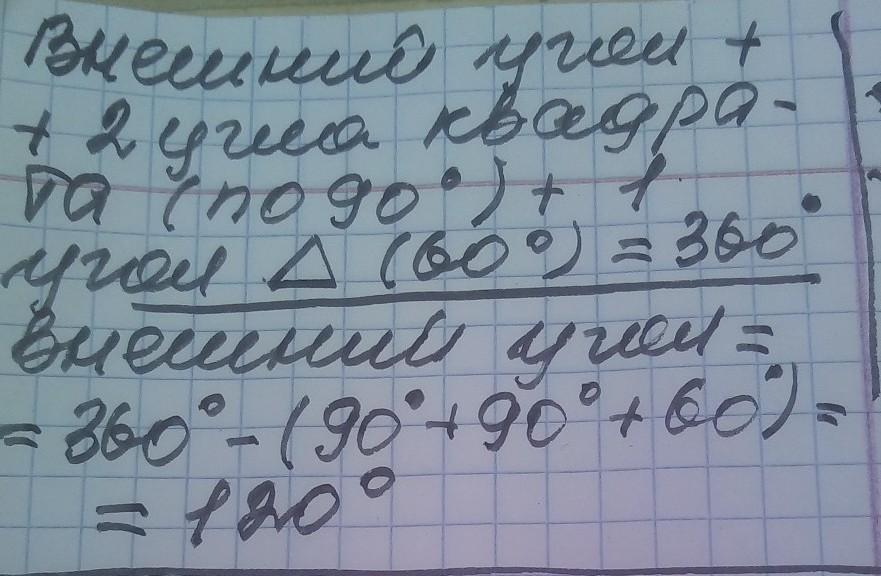 Внешний угол +
+ 2 угла квадра-
та (по 90°) + 1
угол △ (60°) = 360°
Внешний угол =
= 360° - (90° + 90° + 60°) =
= 120°